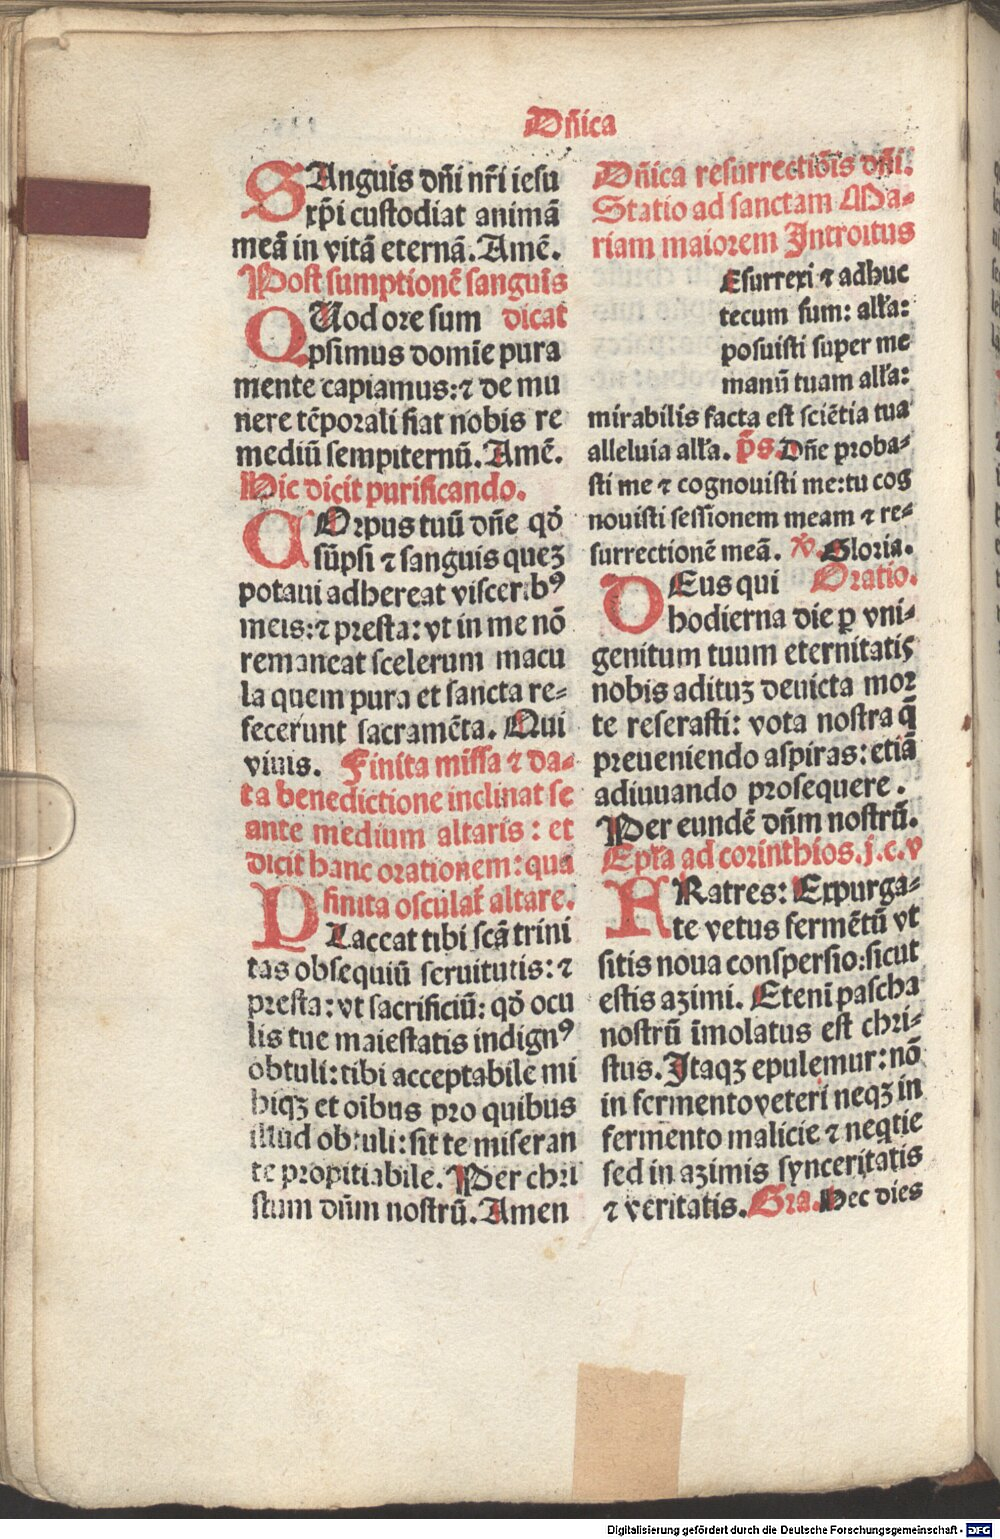 Dn̄ica
SAnguis dn̄i nr̄i iesu
xp̄i custodiat animā
meā in vitā eternā. Amē.
Post sumptionē sanguis
QUod ore sum dicat
psimus domīe pura
mente capiamus: ⁊ de mu
nere tēporali fiat nobis re
mediū sempiternū. Amē.
Hic dicit purificando.
COrpus tuū dn̄e qd̄
sūpsi ⁊ sanguis queꝫ
potaui adhereat visceribꝰ
meis: ⁊ presta: vt in me nō
remaneat scelerum macu
la quem pura et sancta re⸗
fecerunt sacramēta. Qui
viuis. Finita missa ⁊ da⸗
ta benedictione inclinat se
ante medium altaris: et
dicit hanc orationem: qua
finita osculat̄ altare.
PLaceat tibi scā trini
tas obsequiū seruitutis: ⁊
presta: vt sacrificiū: qd̄ ocu
lis tue maiestatis indignꝰ
obtuli: tibi acceptabile mi
hiqꝫ et oībus pro quibus
illud obtuli: sit te miseran
te propitiabile. Per chri
stum dūm nostrū. Amen
Dn̄ica resurrectiōis dn̄i.
Statio ad sanctam Ma⸗
riam maiorem Introitus
Esurrexi ⁊ adhuc
tecum sum: alľa:
posuisti super me
manū tuam alľa:
mirabilis facta est sciētia tua
alleluia alľa. p̄s. Dn̄e proba⸗
sti me ⁊ cognouisti me: tu cog
nouisti sessionem meam ⁊ re⸗
surrectionē meā. ℣. Gloria.
DEus qui Oratio.
hodierna die ꝑ vni⸗
genitum tuum eternitatis
nobis adituꝫ deuicta mor
te reserasti: vota nostra q̄
preueniendo aspiras: etiā
adiuuando prosequere.
Per eundē dn̄m nostrū.
Epľa ad corinthios. j. c. v
FRatres: Expurga⸗
te vetus fermētū vt
sitis noua conspersio: sicut
estis azimi. Etenī pascha
nostrū īmolatus est chri⸗
stus. Itaqꝫ epulemur: nō
in fermento veteri neqꝫ in
fermento malicie ⁊ neqtie
sed in azimis synceritatis
⁊ veritatis. Gra. Hec dies
Digitalisierung gefördert durch die Deutsche Forschungsgemeinschaft - DFG